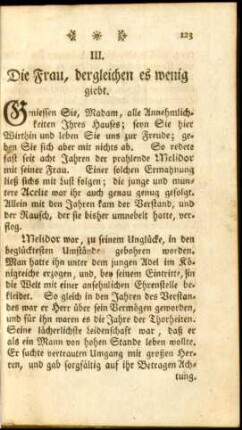 ❧ * ❧ 123
III.
Die Frau, dergleichen es wenig
giebt.
Geniessen Sie, Madam, alle Annehmlich-
keiten Ihres Hauses; seyn Sie hier
Wirthin und leben Sie uns zur Freude; ge-
ben Sie sich aber mit nichts ab. So redete
fast seit acht Jahren der prahlende Melidor
mit seiner Frau. Einer solchen Ermahnung
ließ sichs mit Lust folgen; die junge und mun-
tere Acelie war ihr auch genau genug gefolgt.
Allein mit den Jahren kam der Verstand, und
der Rausch, der sie bisher umnebelt hatte, ver-
flog.
Melidor war, zu seinem Unglücke, in den
beglücktesten Umständen gebohren worden.
Man hatte ihn unter dem jungen Adel im Kö-
nigreiche erzogen, und, bey seinem Eintritte, in
die Welt mit einer ansehnlichen Ehrenstelle be-
kleidet. So gleich in den Jahren des Verstan-
des war er Herr über sein Vermögen geworden,
und für ihn waren es die Jahre der Thorheiten.
Seine lächerlichste Leidenschaft war, daß er
als ein Mann von hohen Stande leben wollte.
Er suchte vertrauten Umgang mit großen Her-
ren, und gab sorgfältig auf ihr Betragen Ach-
tung.